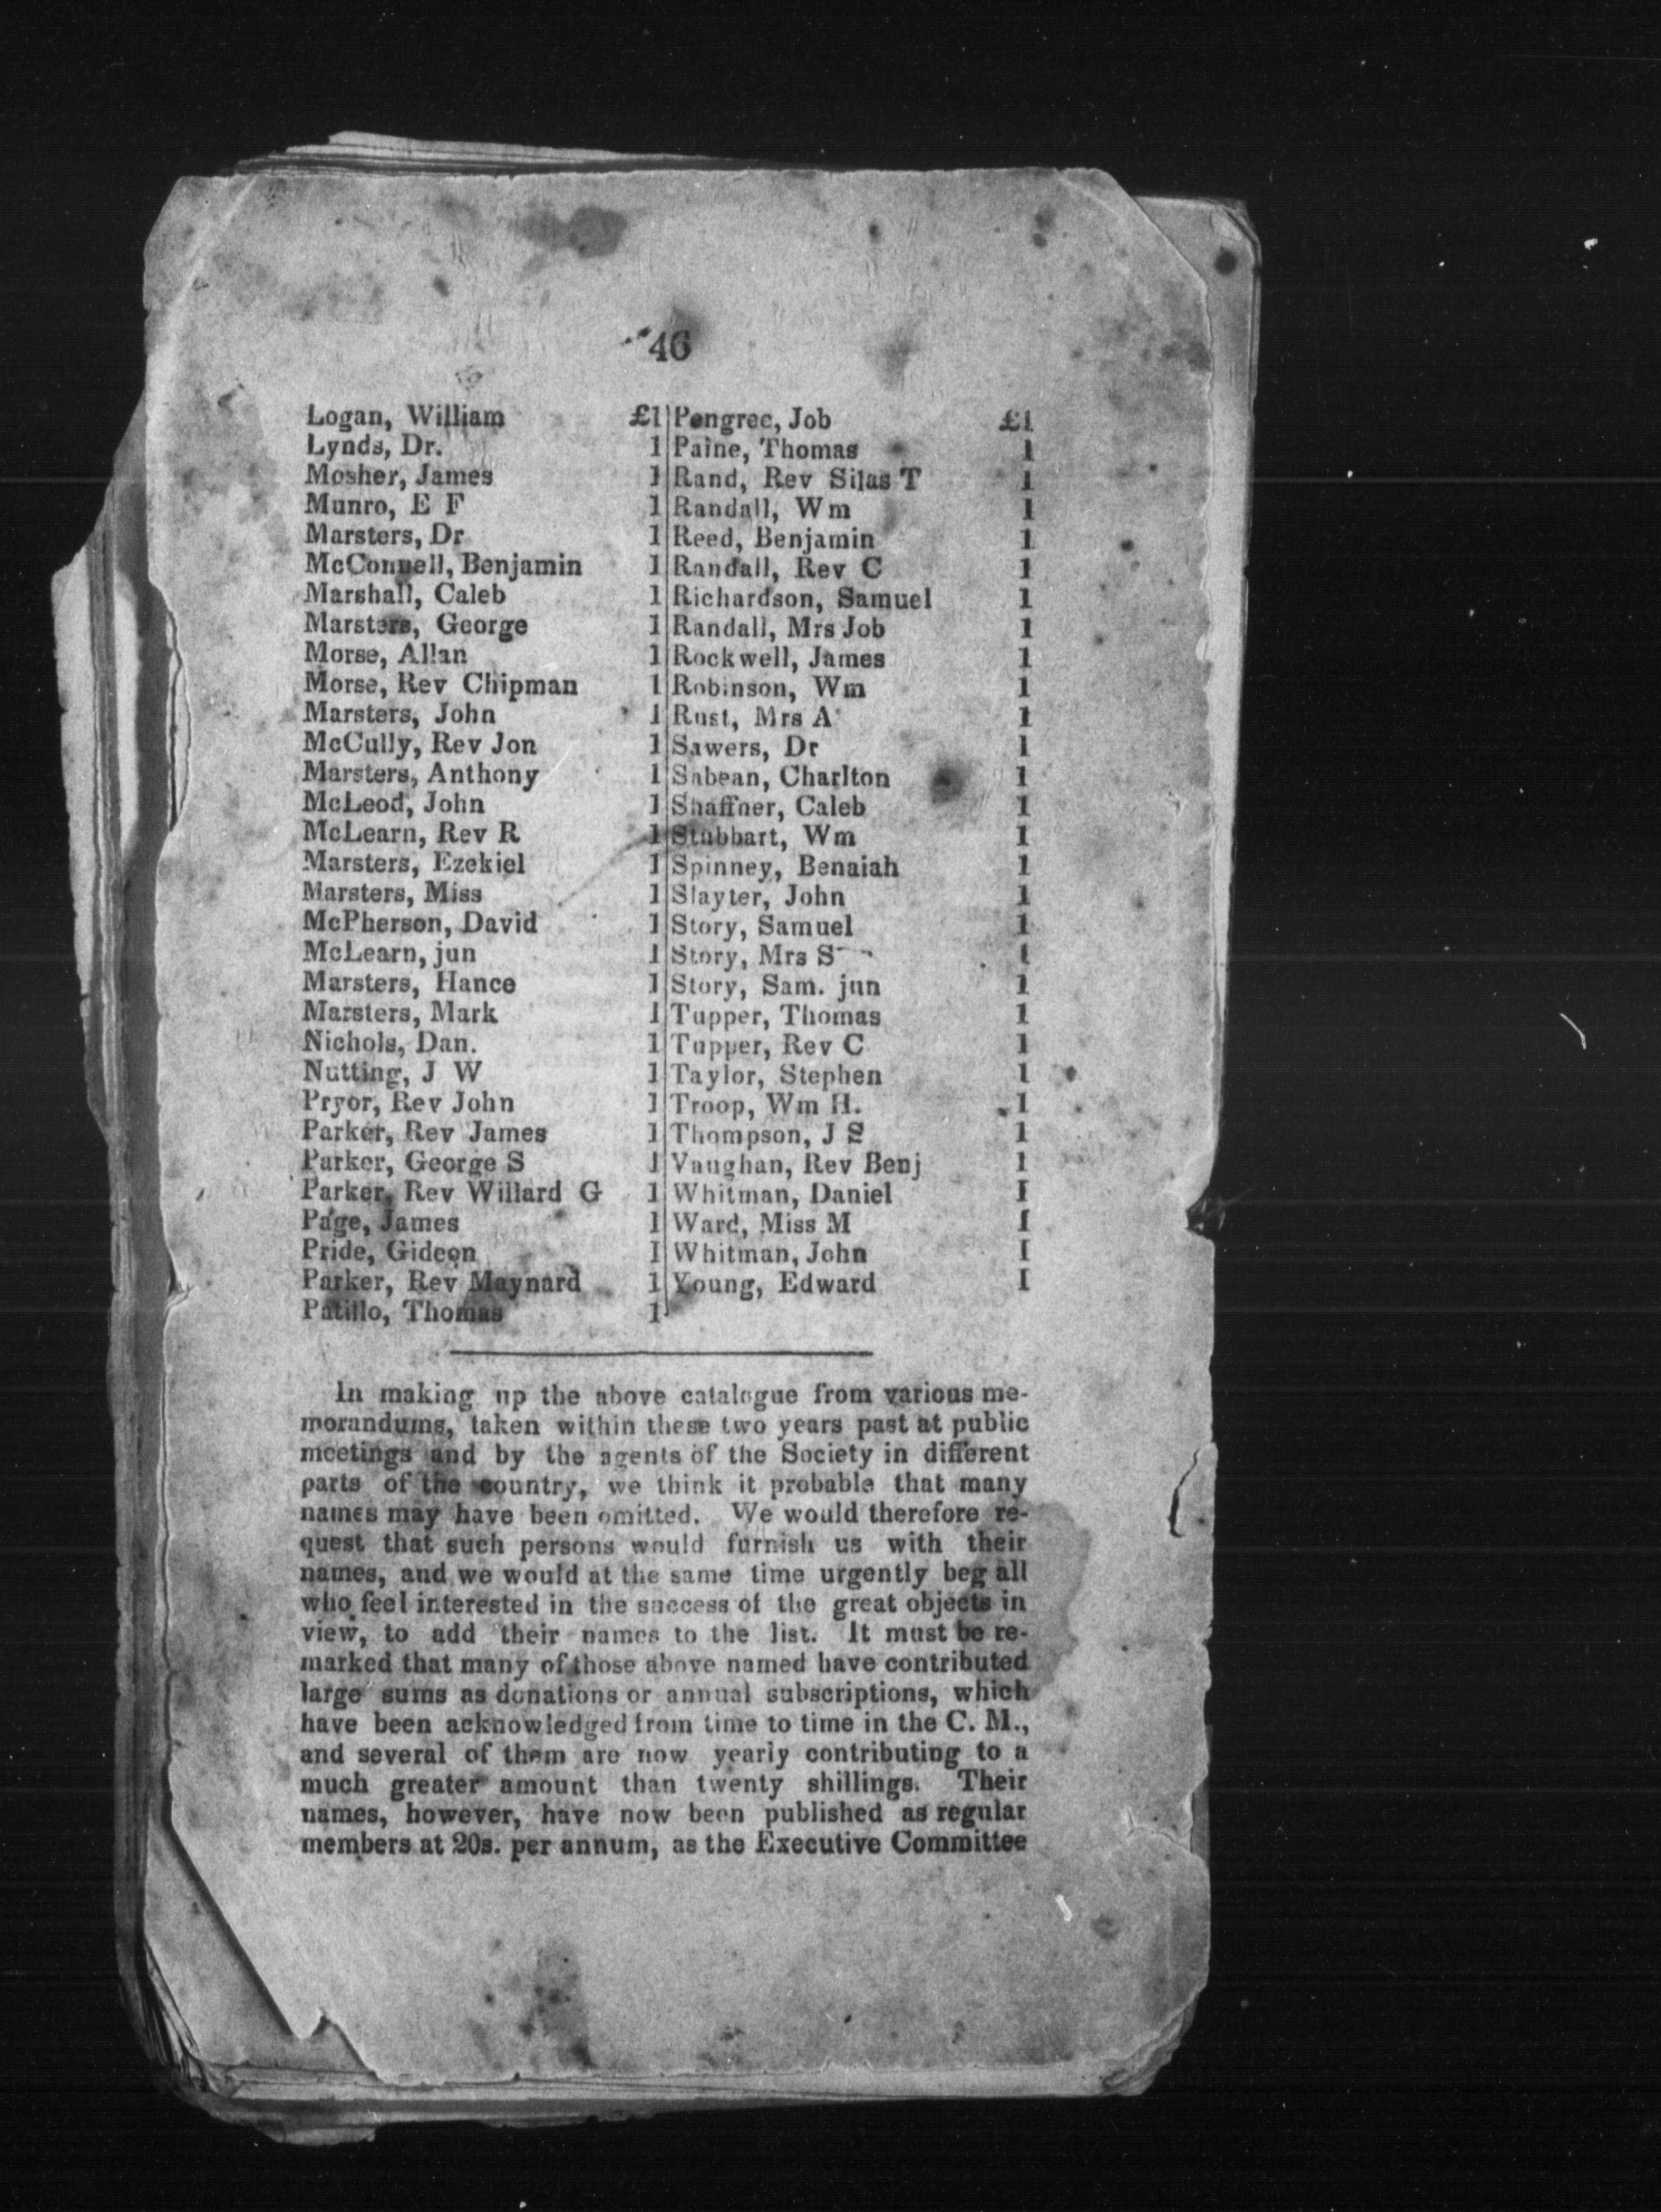 46
Logan, William £1
Lynds, Dr. 1
Mosher, James 1
Munro, E F 1
Marsters, Dr 1
McConnell, Benjamin 1
Marshall, Caleb 1
Marsters, George 1
Morse, Allan 1
Morse, Rev Chipman 1
Marsters, John 1
McCully, Rev Jon 1
Marsters, Anthony 1
McLeod, John 1
McLearn, Rev R 1
Marsters, Ezekiel 1
Marsters, Miss 1
McPherson, David 1
McLearn, jun 1
Marsters, Hance 1
Marsters, Mark 1
Nichols, Dan. 1
Nutting, J W 1
Pryor, Rev John 1
Parker, Rev James 1
Parker, George S 1
Parker, Rev Willard G 1
Page, James 1
Pride, Gideon 1
Parker, Rev Maynard 1
Patillo, Thomas 1
Pengree, Job £1
Paine, Thomas 1
Rand, Rev Silas T 1
Randall, Wm 1
Reed, Benjamin 1
Randall, Rev C 1
Richardson, Samuel 1
Randall, Mrs Job 1
Rockwell, James 1
Robinson, Wm 1
Rust, Mrs A 1
Sawers, Dr 1
Sabean, Charlton 1
Shaffner, Caleb 1
Stubbart, Wm 1
Spinney, Benaiah 1
Slayter, John 1
Story, Samuel 1
Story, Mrs S 1
Story, Sam. jun 1
Tupper, Thomas 1
Tupper, Rev C 1
Taylor, Stephen 1
Troop, Wm H. 1
Thompson, J S 1
Vaughan, Rev Benj 1
Whitman, Daniel 1
Ward, Miss M 1
Whitman, John 1
Young, Edward 1
In making up the above catalogue from various me-
morandums, taken within these two years past at public
meetings and by the agents of the Society in different
parts of the country, we think it probable that many
names may have been omitted. We would therefore re-
quest that such persons would furnish us with their
names, and we would at the same time urgently beg all
who feel interested in the success of the great objects in
view, to add their names to the list. It must be re-
marked that many of those above named have contributed
large sums as donations or annual subscriptions, which
have been acknowledged from time to time in the C. M.,
and several of them are now yearly contributing to a
much greater amount than twenty shillings. Their
names, however, have now been published as regular
members at 20s. per annum, as the Executive Committee